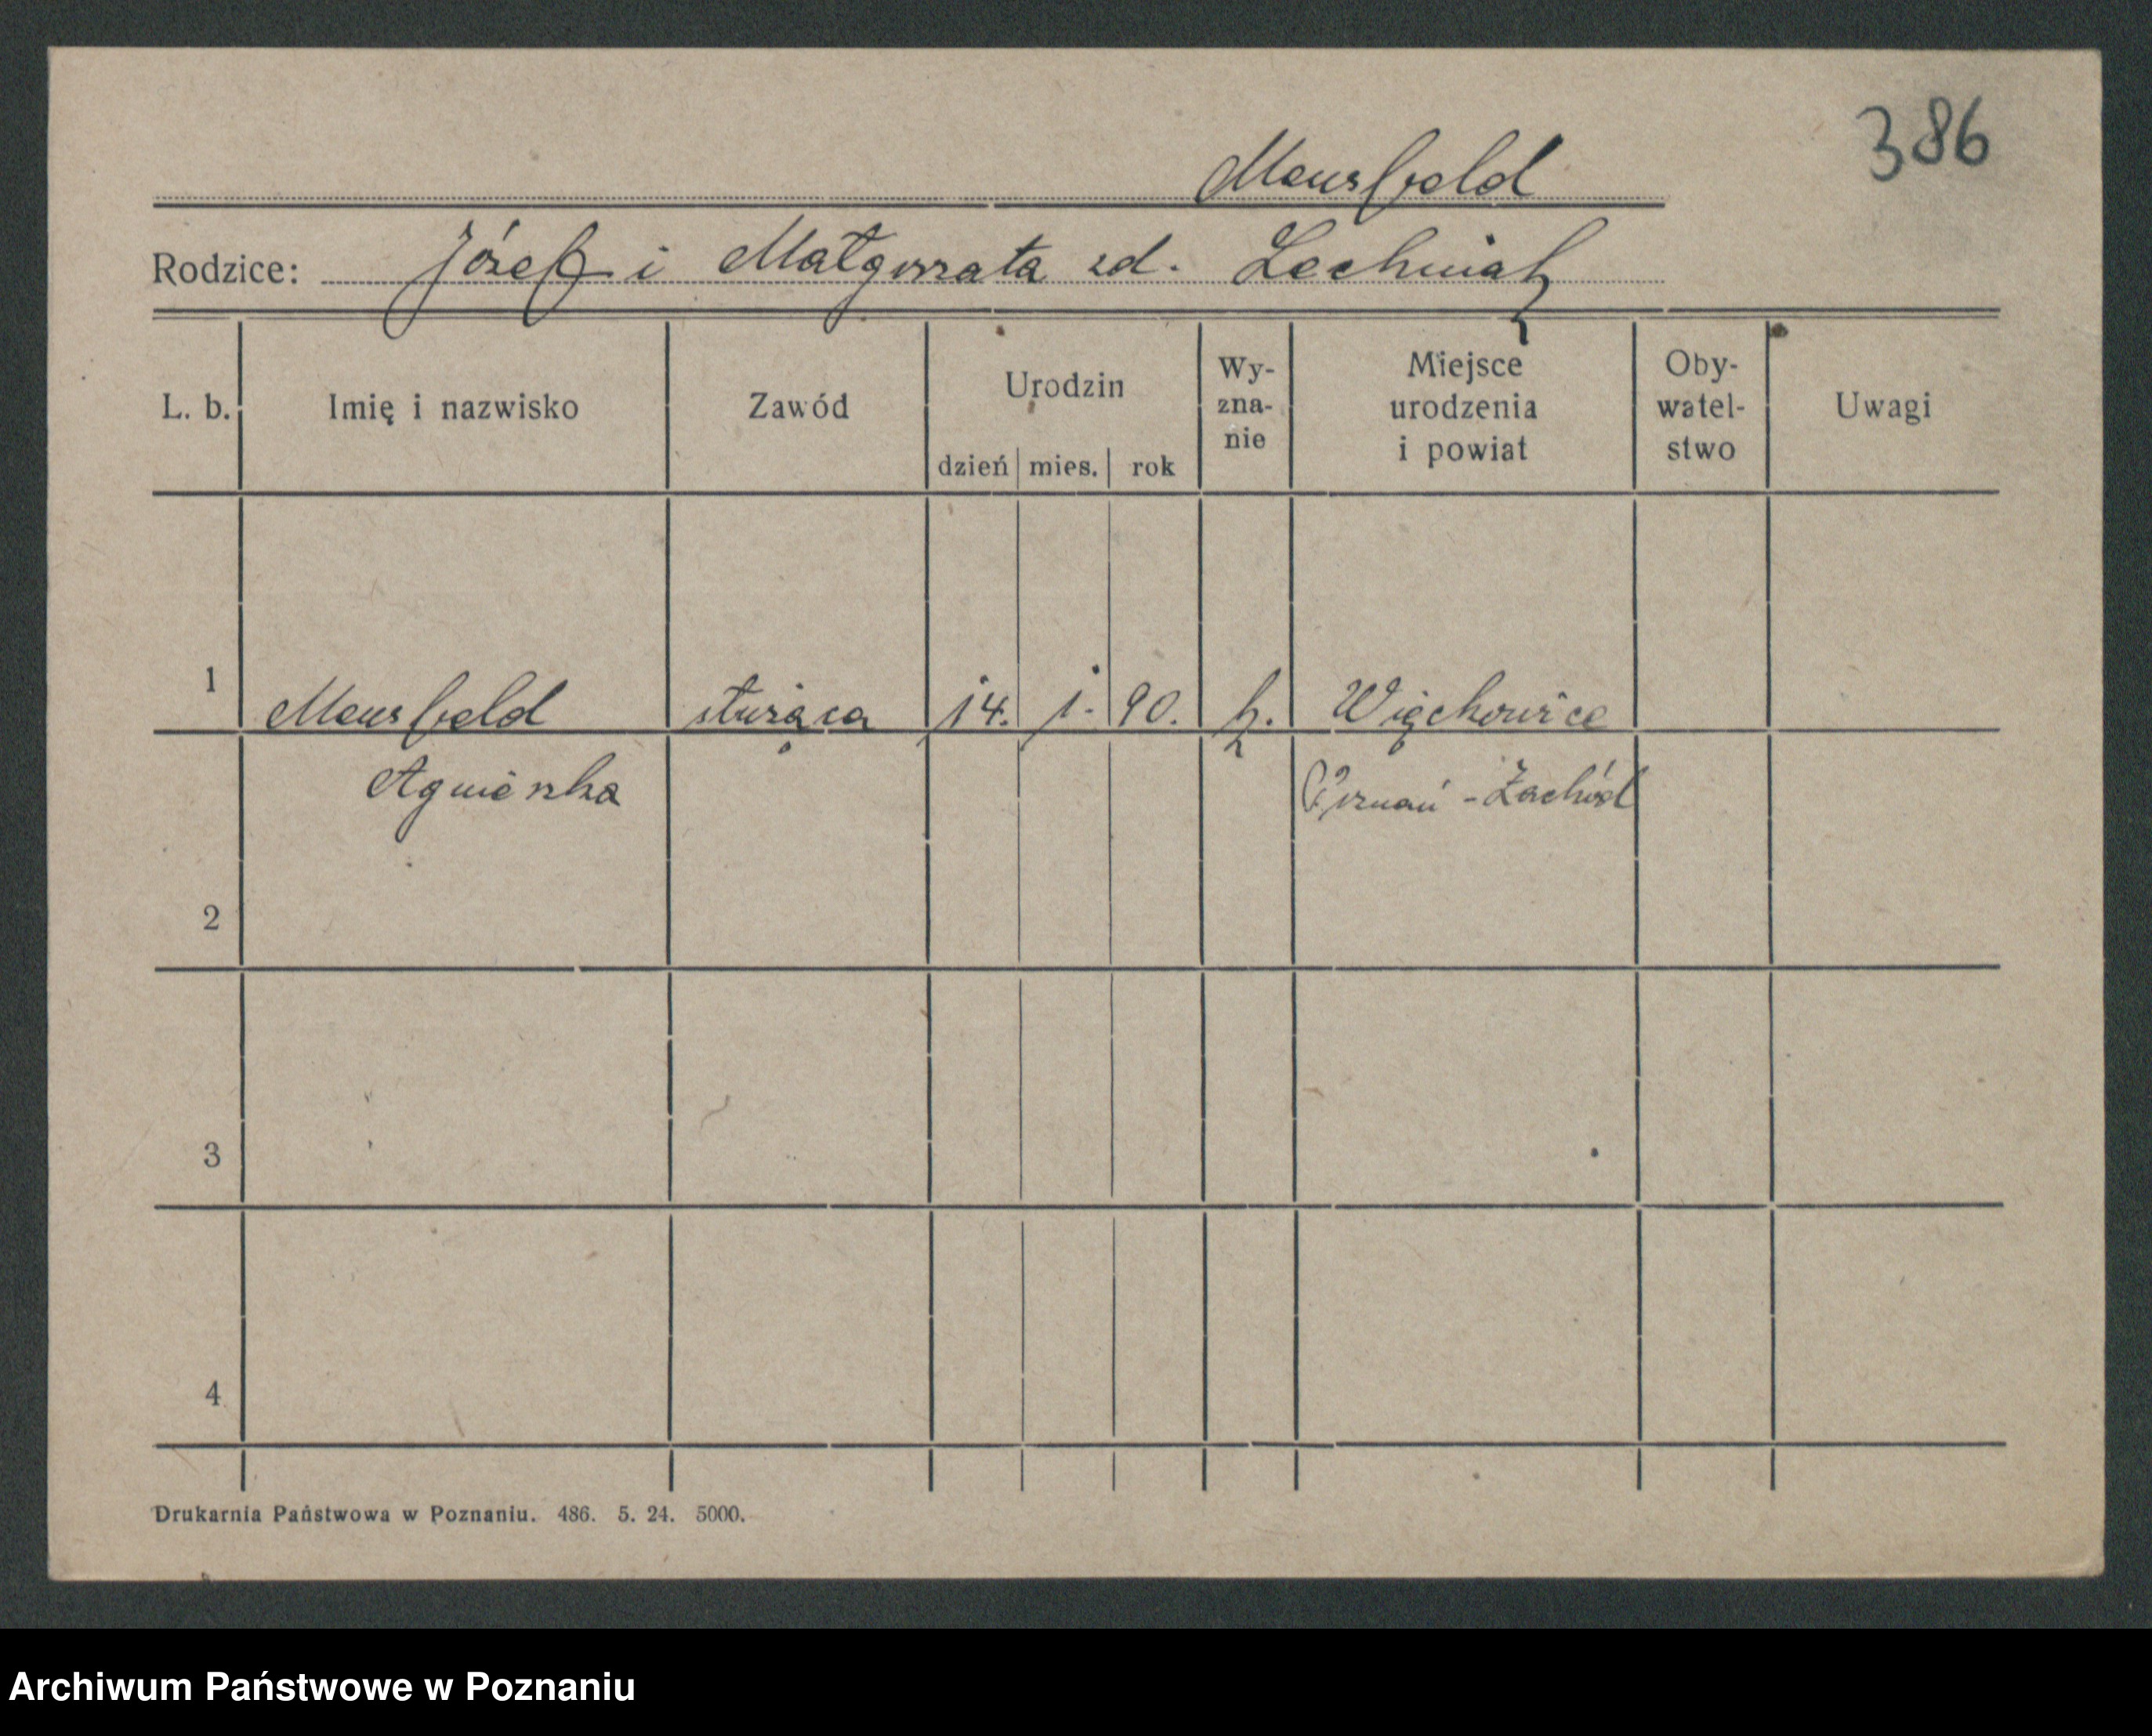 386
Mensfeld
Rodzice: Józef i Małgorzata zd. Lechniak
L. b. Imię i nazwisko Zawód Urodzin dzień mies. rok Wy-zna-nie Miejsce urodzenia i powiat Oby-watel-stwo Uwagi
1 Mensfeld służąca 14. 1. 90. k. Więchowice
Agnieszka Poznań - Zachód
2
3
4
Drukarnia Państwowa w Poznaniu. 486. 5. 24. 5000.
Archiwum Państwowe w Poznaniu